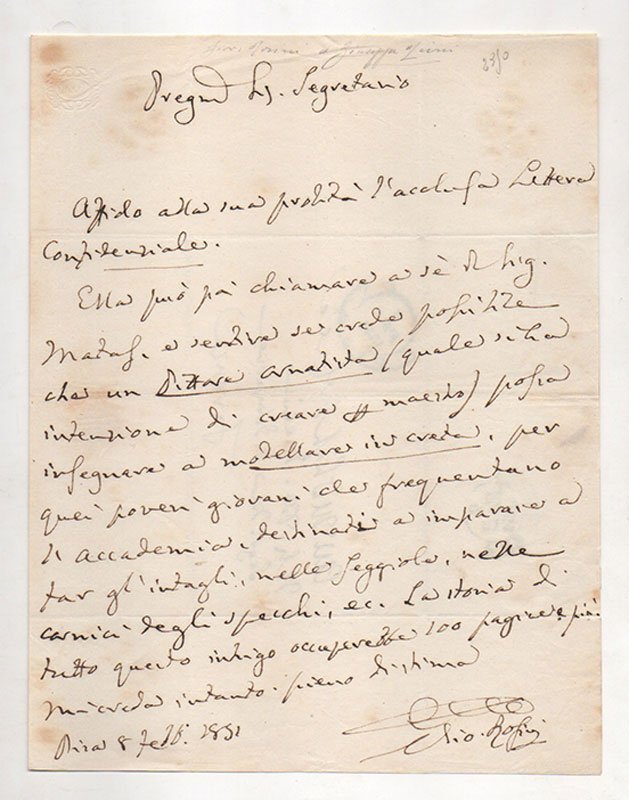 2350
Pregmo Sig. Segretario
Affido alla sua probità l'acclusa Lettera
Confidenziale.
Ella può poi chiamare a sè il Sig.
Matas, e sentire se crede possibile
che un Pittore ornatista (quale si ha
intenzione di creare per maestro) possa
insegnare a modellare in creta, per
quei poveri giovani che frequentano
l'accademia, destinati a imparare a
far gl'intagli, nelle Seggiole, nelle
cornici degli specchi, ec. La storia di
tutto questo intrigo occuperebbe 100 pagine e più.
Mi creda intanto pieno di stima
Pisa 8 Febb. 1851
Gio. Rosini